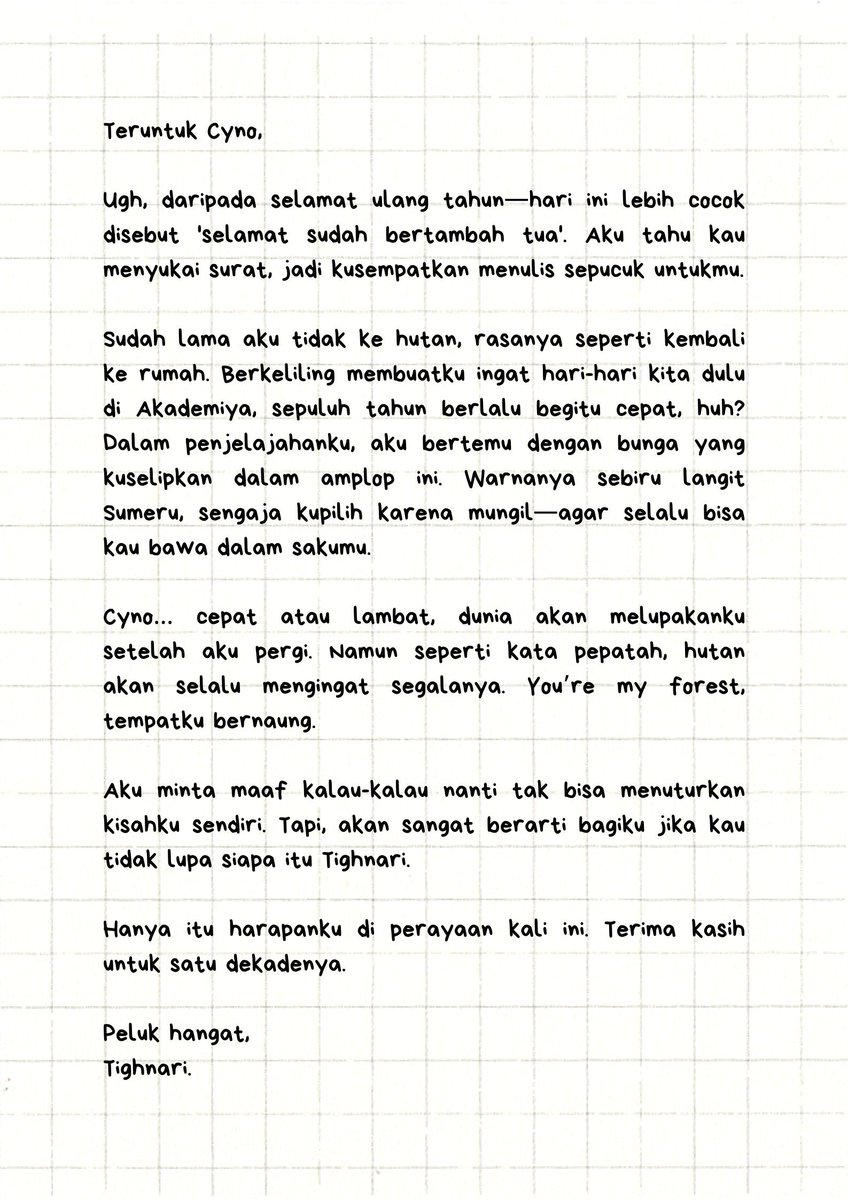 Teruntuk Cyno,
Ugh, daripada selamat ulang tahun—hari ini lebih cocok
disebut 'selamat sudah bertambah tua'. Aku tahu kau
menyukai surat, jadi kusempatkan menulis sepucuk untukmu.
Sudah lama aku tidak ke hutan, rasanya seperti kembali
ke rumah. Berkeliling membuatku ingat hari-hari kita dulu
di Akademiya, sepuluh tahun berlalu begitu cepat, huh?
Dalam penjelajahanku, aku bertemu dengan bunga yang
kuselipkan dalam amplop ini. Warnanya sebiru langit
Sumeru, sengaja kupilih karena mungil—agar selalu bisa
kau bawa dalam sakumu.
Cyno... cepat atau lambat, dunia akan melupakanku
setelah aku pergi. Namun seperti kata pepatah, hutan
akan selalu mengingat segalanya. You're my forest,
tempatku bernaung.
Aku minta maaf kalau-kalau nanti tak bisa menuturkan
kisahku sendiri. Tapi, akan sangat berarti bagiku jika kau
tidak lupa siapa itu Tighnari.
Hanya itu harapanku di perayaan kali ini. Terima kasih
untuk satu dekadenya.
Peluk hangat,
Tighnari.